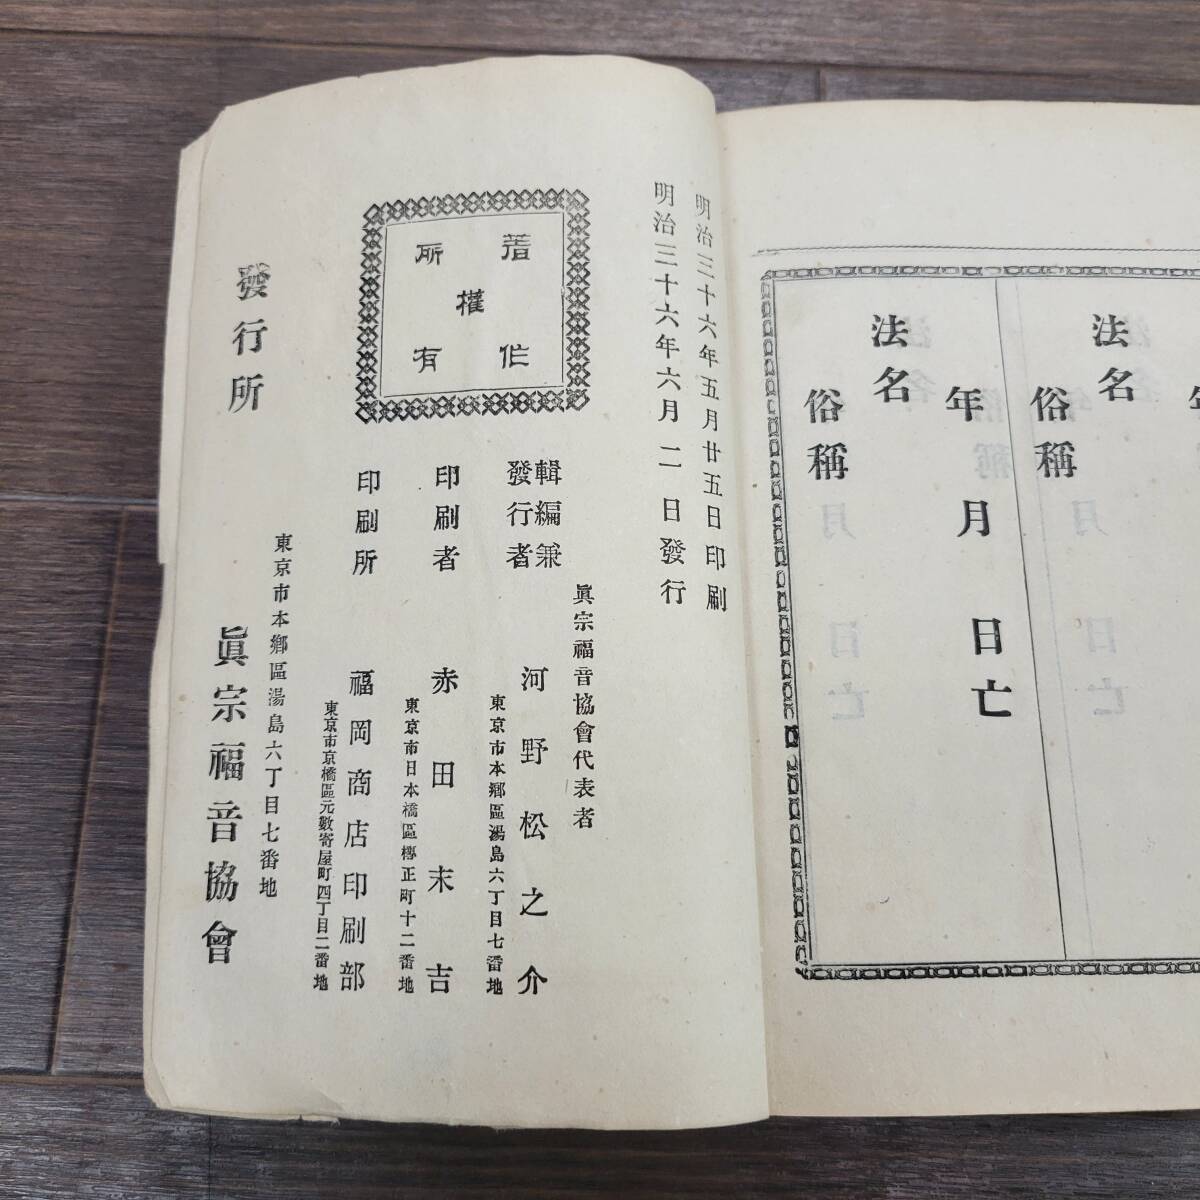 年
法名
俗稱
年月日亡
法名
俗稱
明治三十六年五月廿五日印刷
明治三十六年六月二日發行
著作
權
所有
眞宗福音協會代表者
輯編兼
發行者
河野松之介
東京市本鄉區湯島六丁目七番地
印刷者
赤田末吉
東京市日本橋區榑正町十二番地
印刷所
福岡商店印刷部
東京市京橋區元數寄屋町四丁目二番地
東京市本鄉區湯島六丁目七番地
發行所
眞宗福音協會